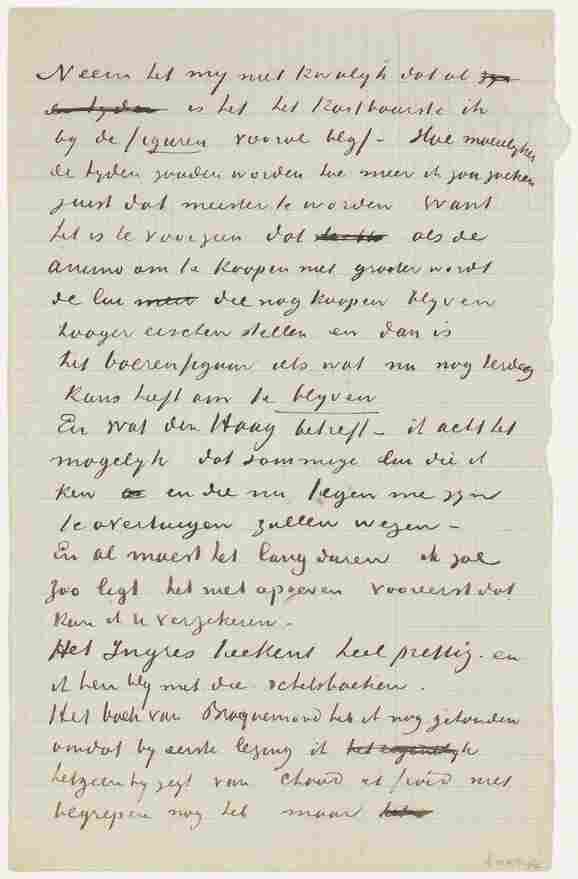 Neem het my niet kwalyk dat al zyn
is het het kostbaarste ik
by de figuren vooral blyf – Hoe moeielyker
de tyden zouden worden hoe meer ik zou zoeken
juist dat meester te worden Want
het is te voorzien dat als de
animo om te koopen niet grooter wordt
de lui meer die nog koopen blyven
hooger eischen stellen en dan is
het boerenfiguur iets wat nu nog terdeg
kans heeft om te blyven
En wat den Haag betreft – ik acht het
mogelyk dat sommige lui die ik
ken en die nu tegen me zyn
te overtuigen zullen wezen –
En al moest het lang duren ik zal
zoo ligt het niet opgeven vooreerst dat
kan ik u verzekeren –
Het Ingres teekent heel prettig – en
ik ben bly met die schetsboeken.
Het boek van Braquemond heb ik nog gehouden
omdat by eerste lezing ik het eigentlyk
hetgeen hy zegt van chaud et froid niet
begrepen nog heb maar